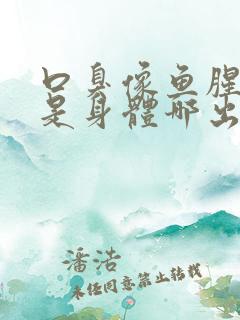 口臭像鱼腥
是身體哪出
潘洁
未经同意禁止转载